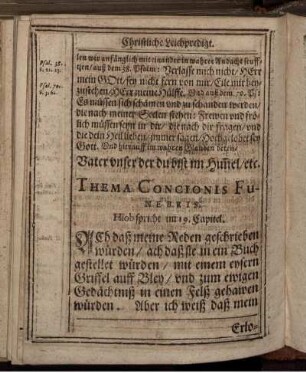 Christliche Leichpredigt.
len wir anfänglich mit einander in wahrer Andacht seuff-
tzen / auß dem 38. Psalm: Verlasse mich nicht / HErr
mein GOtt / sey nicht fern von mir / Eile mir bey-
zustehen / HErr meine Hülffe. Und auß dem 70. Ps:
Es müssen sich schämen und zu schanden werden /
die nach meiner Seelen stehen: Frewen und frö-
lich müssen seyn in dir / die nach dir fragen / und
die dein Heil lieben / immer sagen / Hochgelobet sey
Gott. Und hierauff im wahren Glauben beten /
Vater unser der du bist im Himmel / etc.
THEMA CONCIONIS FU-
NEBRIS.
Hiob spricht im 19. Capitel.
ACh daß meine Reden geschrieben
würden / ach daß sie in ein Buch
gestellet würden / mit einem eysern
Griffel auff Bley / und zum ewigen
Gedächtniß in einen Felß gehawen
würden. Aber ich weiß daß mein
Erlö-
Psal. 38.
Psal. 70.